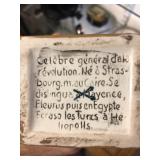 Célèbre général de la
révolution. Né à Stras-
bourg. m. au Caire. Se
distingua à Mayence,
Fleurus puis en Egypte
Ecrasa les Turcs à Hé
liopolis.